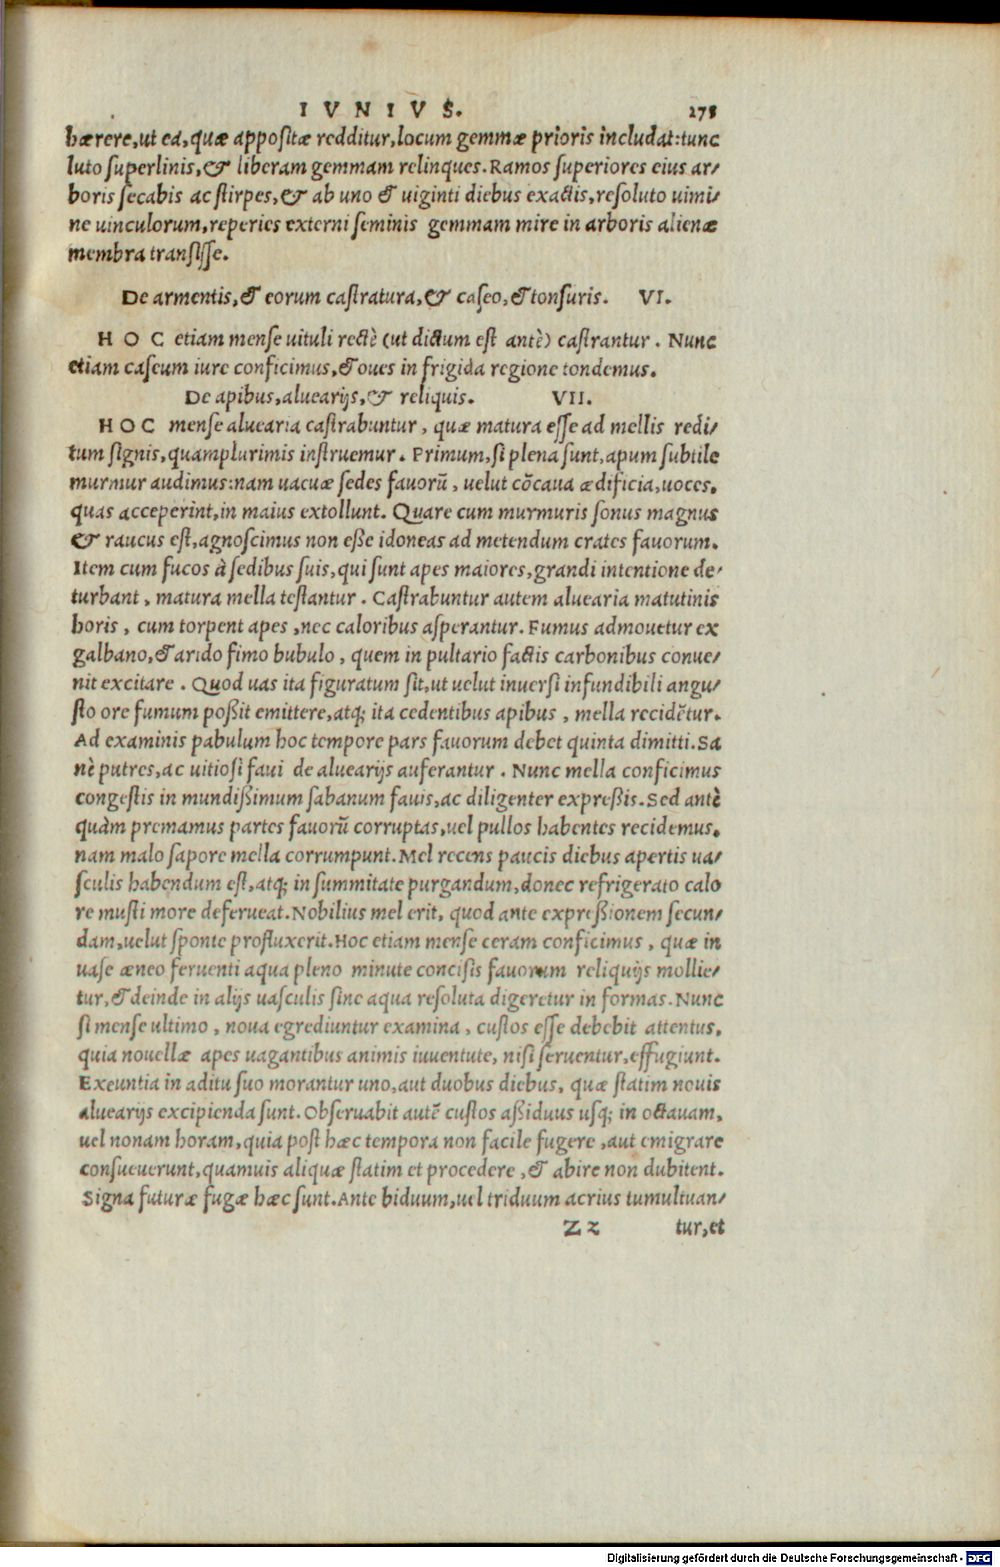 IVNIVS. 275
hærere,ut ea,quæ appositæ redditur,locum gemmæ prioris includat:tunc
luto superlinis,& liberam gemmam relinques.Ramos superiores eius ar/
boris secabis ac stirpes,& ab uno & uiginti diebus exactis,resoluto uimi/
ne uinculorum,reperies externi seminis gemmam mire in arboris alienæ
membra transisse.
De armentis,& eorum castratura,& caseo,& tonsuris. VI.
HOC etiam mense uituli rectè (ut dictum est antè) castrantur. Nunc
etiam caseum iure conficimus,& oues in frigida regione tondemus.
De apibus,aluearijs,& reliquis. VII.
HOC mense aluearia castrabuntur, quæ matura esse ad mellis redi/
tum signis,quamplurimis instruemur. Primum,si plena sunt,apum subtile
murmur audimus:nam uacuæ sedes fauorũ, uelut cõcaua ædificia,uoces,
quas acceperint,in maius extollunt. Quare cum murmuris sonus magnus
& raucus est,agnoscimus non eße idoneas ad metendum crates fauorum.
Item cum fucos à sedibus suis,qui sunt apes maiores,grandi intentione de/
turbant, matura mella testantur. Castrabuntur autem aluearia matutinis
horis, cum torpent apes,nec caloribus asperantur. Fumus admouetur ex
galbano,& arido fimo bubulo, quem in pultario factis carbonibus conue/
nit excitare. Quod uas ita figuratum sit,ut uelut inuersi infundibili angu/
sto ore fumum poßit emittere,atq; ita cedentibus apibus, mella recidẽtur.
Ad examinis pabulum hoc tempore pars fauorum debet quinta dimitti.Sa
nè putres,ac uitiosi faui de aluearijs auferantur. Nunc mella conficimus
congestis in mundißimum sabanum fauis,ac diligenter expreßis.Sed antè
quàm premamus partes fauorũ corruptas,uel pullos habentes recidemus,
nam malo sapore mella corrumpunt.Mel recens paucis diebus apertis ua/
sculis habendum est,atq; in summitate purgandum,donec refrigerato calo
re musti more deferueat.Nobilius mel erit, quod ante expreßionem secun/
dam,uelut sponte profluxerit.Hoc etiam mense ceram conficimus, quæ in
uase æneo feruenti aqua pleno minute concisis fauorum reliquijs mollie/
tur,& deinde in alijs uasculis sine aqua resoluta digeretur in formas.Nunc
si mense ultimo, noua egrediuntur examina, custos esse debebit attentus,
quia nouellæ apes uagantibus animis iuuentute, nisi seruentur,effugiunt.
Exeuntia in aditu suo morantur uno,aut duobus diebus, quæ statim nouis
aluearijs excipienda sunt.Obseruabit autẽ custos aßiduus usq; in octauam,
uel nonam horam,quia post hæc tempora non facile fugere,aut emigrare
consueuerunt,quamuis aliquæ statim et procedere,& abire non dubitent.
Signa futuræ fugæ hæc sunt.Ante biduum,uel triduum acrius tumultuan/
Zz tur,et
Digitalisierung gefördert durch die Deutsche Forschungsgemeinschaft - DFG